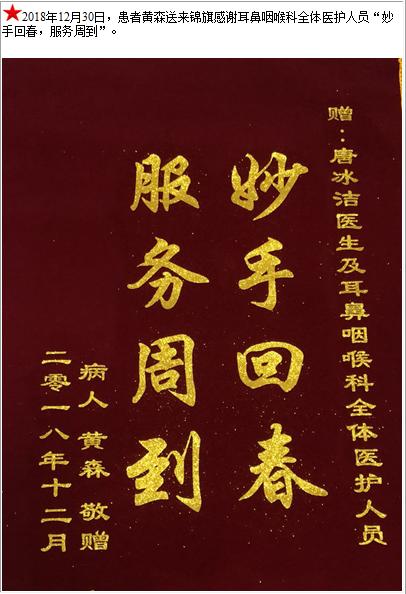 2018年12月30日，患者黄森送来锦旗感谢耳鼻咽喉科全体医护人员“妙
手回春，服务周到”。
赠：唐冰洁医生及耳鼻咽喉科全体医护人员
妙手回春
服务周到
病人 黄森 敬赠
二零一八年十二月